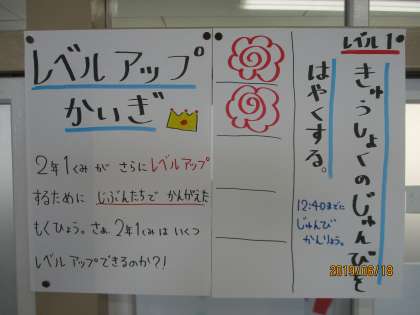 レベルアップ
かいぎ
2年1くみ が さらに レベルアップ
するために じぶんたちで かんがえた
もくひょう。さぁ、2年1くみは いくつ
レベルアップできるのか?!
レベル1
きゅうしょくのじゅんびを
はやくする。
12:40までに
じゅんび
かんりょう。
2019/06/18